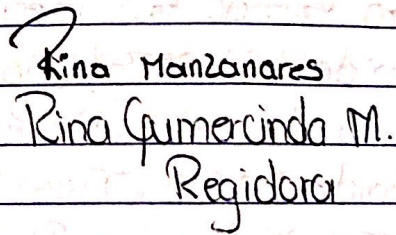 Rina Manzanares
Rina Gumercinda M.
Regidora